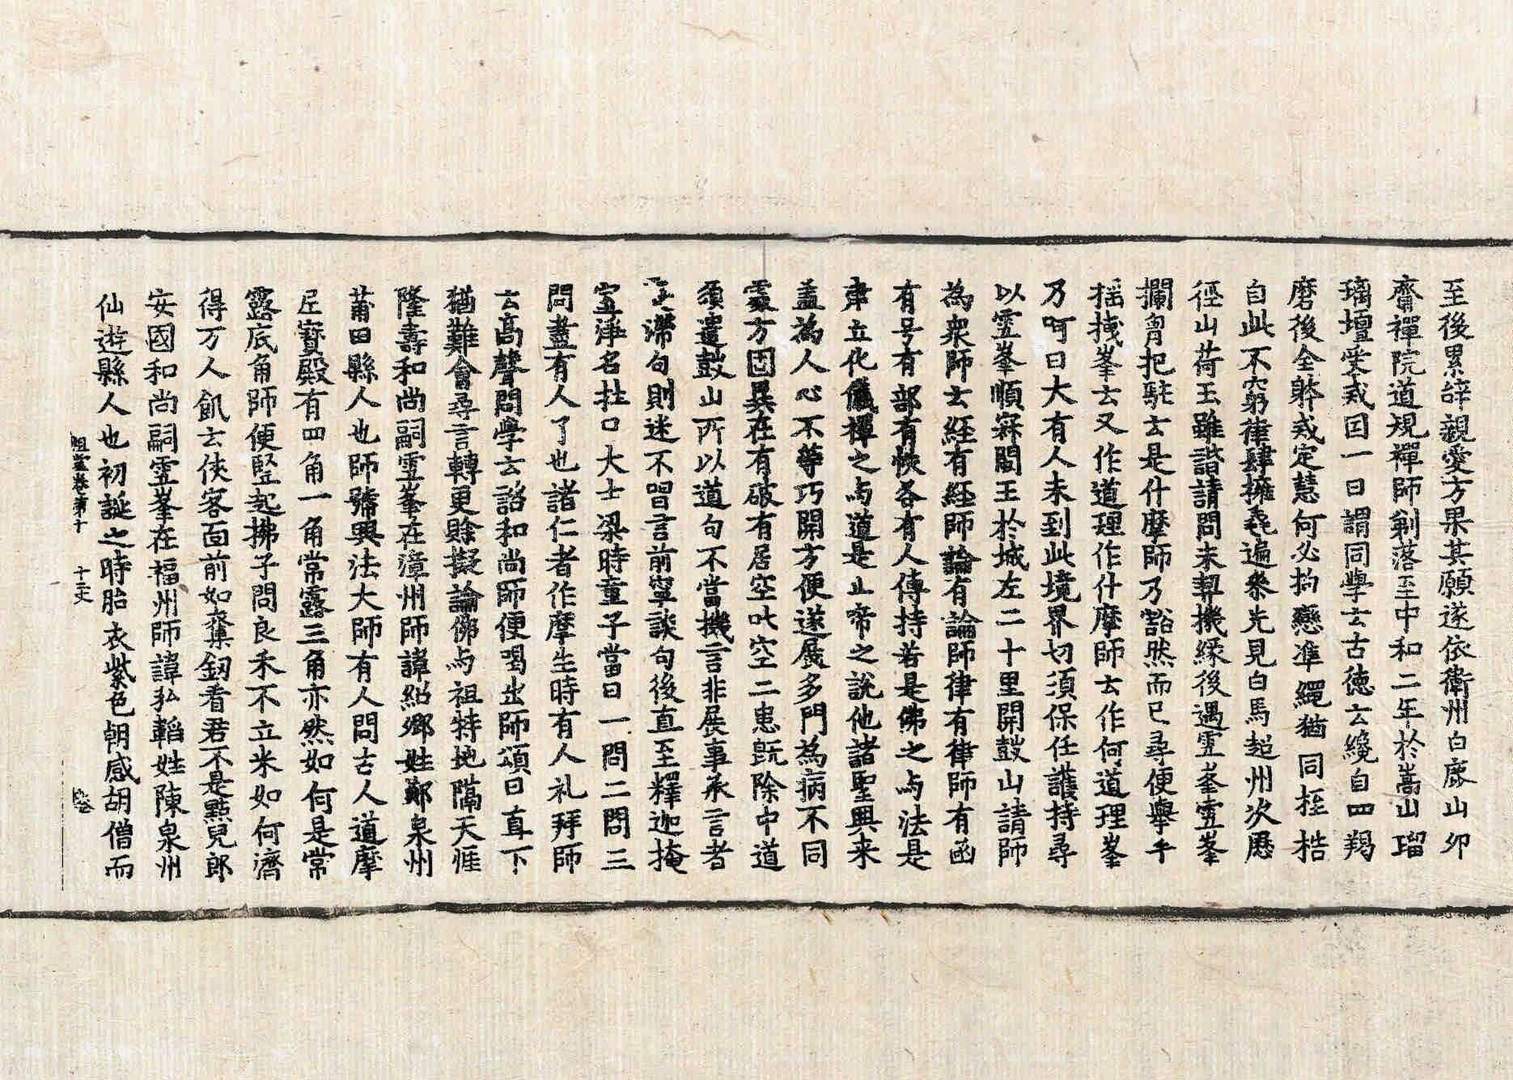 至後累辞親愛方果其願遂依衛州白鹿山卯
齋禪院道規禪師剃落至中和二年於嵩山瑠
璃壇受戒因一日謂同學云古德云纔自四羯
磨後全躰戒定慧何必拘戀準繩猶同挃梏
自此不窮律肆擁毳遍參先見白馬超州次慿
徑山荷玉雖諮請問未契機緣後遇雪峯雪峯
攔胷把駐云是什摩師乃豁然而已尋便舉手
揺拽峯云又作道理作什摩師云作何道理峯
乃呵曰大有人未到此境界切須保任護持尋
以雪峯順寂閩王於城左二十里開鼓山請師
為衆師云經有經師論有論師律有律師有函
有号有部有帙各有人傳持若是佛之与法是
聿立化儀禪之与道是止啼之說他諸聖興来
盖為人心不等巧開方便遂展多門為病不同
處方固異在有破有居空叱空二患旣除中道
須遣鼓山所以道句不當機言非展事承言者
滯句則迷不唱言前寧談句後直至釋迦掩
室淨名杜口大士梁時童子當日一問二問三
問盡有人了也諸仁者作摩生時有人礼拜師
云高聲問學云諮和尚師便喝出師頌曰直下
猶難會尋言轉更賖擬論佛与祖特地隔天涯
隆壽和尚嗣雪峯在漳州師諱紹鄉姓鄭泉州
莆田縣人也師號興法大師有人問古人道摩
尼寶殿有四角一角常露三角亦然如何是常
露底角師便竪起拂子問良禾不立米如何濟
得万人飢云俠客面前如奪釰看君不是黠兒郎
安國和尚嗣雪峯在福州師諱弘韜姓陳泉州
仙遊縣人也初誕之時胎衣紫色朝感胡僧而
祖堂卷第十 十二丈